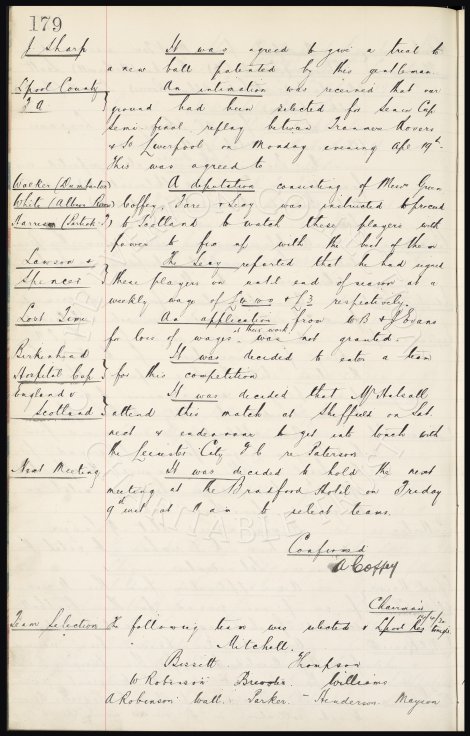 179
J Sharp It was agreed to give a trial to
a new ball patented by this gentleman.
Lpool County An intimation was received that our
F A ground had been selected for Senior Cup
Semi final replay between Tranmere Rovers
& So Liverpool on Monday evening Apl 19th.
This was agreed to
Walker (Dumbarton A deputation consisting of Messrs Green
White (Albion Rovers) Coffey, Fare & Secy was instructed to proceed
Harrison (Partick T) to Scotland to watch these players with
power to fix up with the best of them
Lawson & The Secy reported that he had signed
Spencer these players on until end of season at a
weekly wage of & £3 respectively.
Lost Time An application from W B & J Evans
at their work
for loss of wages was not granted.
Birkenhead It was decided to enter a team
Hospital Cup for this competition
England v It was decided that Mr Halsall
Scotland attend this match at Sheffield on Sat
next & endeavour to get into touch with
the Leicester City F C re Paterson
Next Meeting It was decided to hold the next
meeting at the Bradford Hotel on Friday
9th inst at to select teams.
Confirmed
A Coffey
Chairman
Team Selection The following team was selected v Lpool Res
Mitchell.
Bissett. Thompson
W Robinson Brewster. Williams
A Robinson Wall. Parker. Henderson Mayson